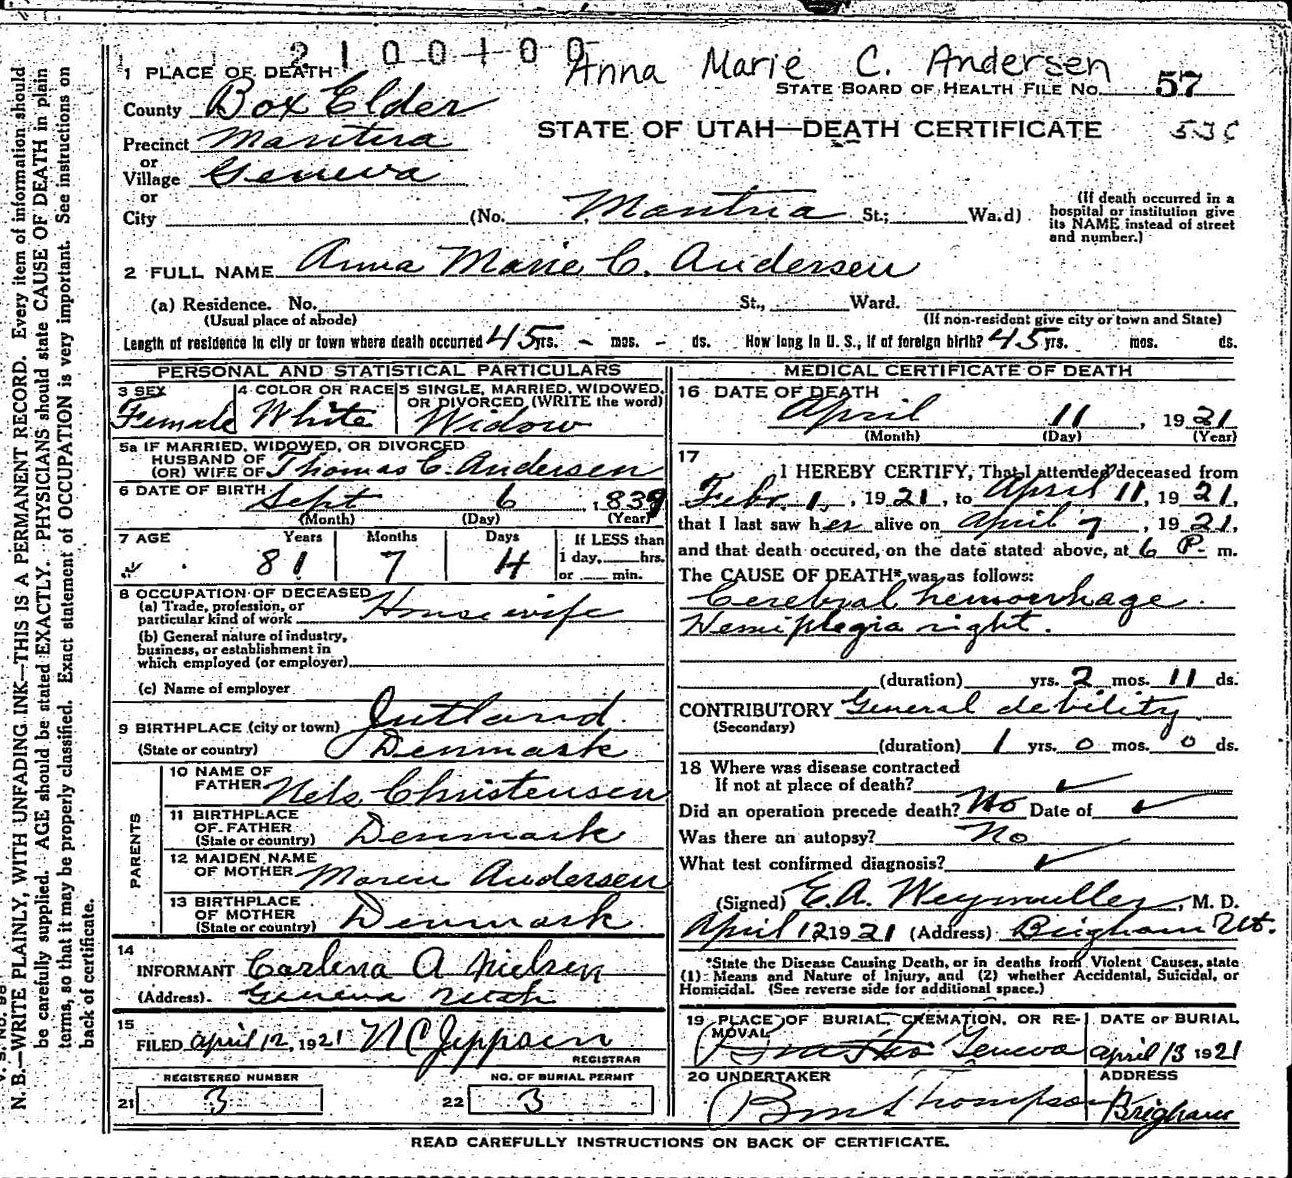 2100100
Anna Marie C. Andersen
1 PLACE OF DEATH
STATE BOARD OF HEALTH FILE NO. 57
County Box Elder
STATE OF UTAH—DEATH CERTIFICATE 53C
Precinct Mantua
or
Village Geneva
or
City (No. Mantua St.; Wa.d)
(If death occurred in a hospital or institution give its NAME instead of street and number.)
2 FULL NAME Anna Marie C. Andersen
(a) Residence. No. St., Ward.
(Usual place of abode) (If non-resident give city or town and State)
Length of residence in city or town where death occurred 45 yrs. - mos. - ds. How long in U. S., if of foreign birth? 45 yrs. mos. ds.
PERSONAL AND STATISTICAL PARTICULARS
3 SEX 4 COLOR OR RACE 5 SINGLE, MARRIED, WIDOWED,
OR DIVORCED (WRITE the word)
Female White Widow
5a IF MARRIED, WIDOWED, OR DIVORCED
HUSBAND OF
(OR) WIFE OF Thomas C. Andersen
6 DATE OF BIRTH Sept 6, 1839
(Month) (Day) (Year)
7 AGE Years Months Days If LESS than
81 7 4 1 day, hrs.
or min.
8 OCCUPATION OF DECEASED
(a) Trade, profession, or
particular kind of work Housewife
(b) General nature of industry,
business, or establishment in
which employed (or employer)
(c) Name of employer
9 BIRTHPLACE (city or town) Jutland
(State or country) Denmark
PARENTS
10 NAME OF
FATHER Nels Christensen
11 BIRTHPLACE
OF FATHER
(State or country) Denmark
12 MAIDEN NAME
OF MOTHER Maren Andersen
13 BIRTHPLACE
OF MOTHER
(State or country) Denmark
14
INFORMANT Carlena A Nielsen
(Address). Geneva Utah
15
FILED april 12, 1921 N C Jeppsen
REGISTRAR
REGISTERED NUMBER NO. OF BURIAL PERMIT
21 3 22 3
MEDICAL CERTIFICATE OF DEATH
16 DATE OF DEATH
April 11, 1921
(Month) (Day) (Year)
17
I HEREBY CERTIFY, That I attended deceased from
Febr. 1, 1921, to April 11, 1921,
that I last saw her alive on April 7, 1921,
and that death occured, on the date stated above, at 6 P. m.
The CAUSE OF DEATH* was as follows:
Cerebral hemorrhage.
Hemiplegia right.
(duration) yrs. 2 mos. 11 ds.
CONTRIBUTORY General debility
(Secondary)
(duration) 1 yrs. 0 mos. 0 ds.
18 Where was disease contracted
If not at place of death? ✓
Did an operation precede death? No Date of ✓
Was there an autopsy? No
What test confirmed diagnosis? ✓
(Signed) E. A. Weymuller, M. D.
April 12 1921 (Address) Brigham Ut.
*State the Disease Causing Death, or in deaths from Violent Causes, state
(1) Means and Nature of Injury, and (2) whether Accidental, Suicidal, or
Homicidal. (See reverse side for additional space.)
19 PLACE OF BURIAL, CREMATION, OR RE- DATE OF BURIAL
MOVAL
Geneva april 13 1921
20 UNDERTAKER ADDRESS
Thompson Brigham
READ CAREFULLY INSTRUCTIONS ON BACK OF CERTIFICATE.
N. B.—WRITE PLAINLY, WITH UNFADING INK—THIS IS A PERMANENT RECORD. Every item of information should
be carefully supplied. AGE should be stated EXACTLY. PHYSICIANS should state CAUSE OF DEATH in plain
terms, so that it may be properly classified. Exact statement of OCCUPATION is very important. See instructions on
back of certificate.